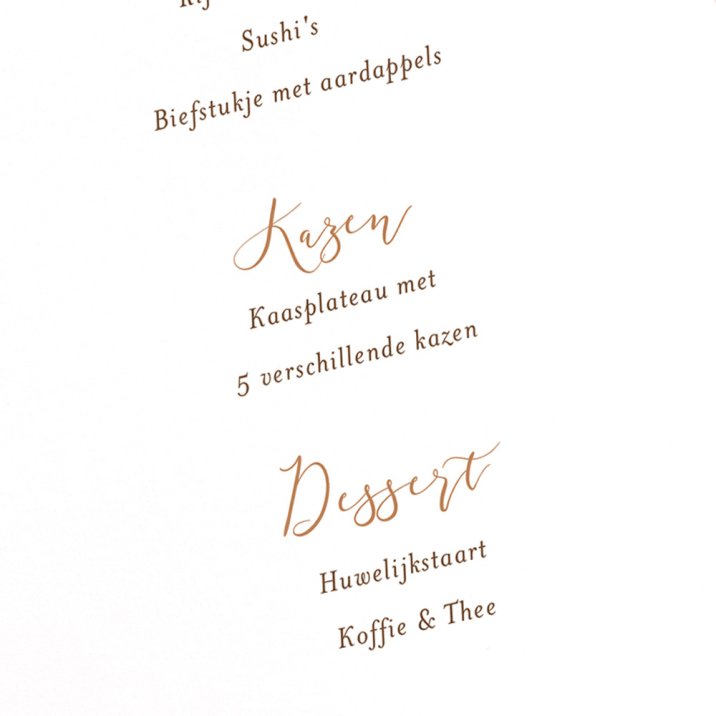 Sushi's
Biefstukje met aardappels
Kazen
Kaasplateau met
5 verschillende kazen
Dessert
Huwelijkstaart
Koffie & Thee